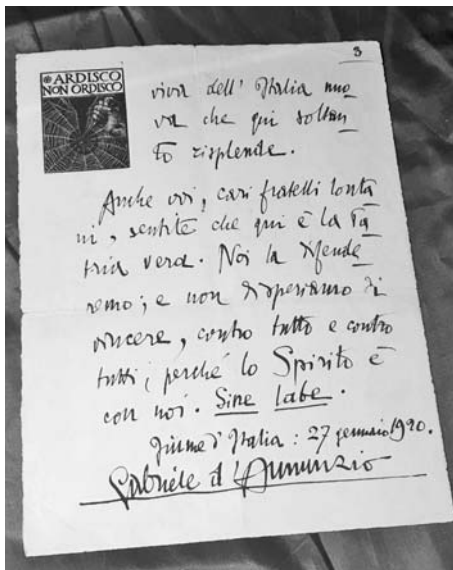 3
ARDISCO
NON ORDISCO
viva dell' Italia nuo
va che qui soltan
to risplende.
Anche voi, cari fratelli lonta
ni, sentite che qui è la Pa
tria vera. Noi la difende
remo; e non disperiamo di
vincere, contro tutto e contro
tutti; perché lo Spirito è
con noi. Sine labe.
Fiume d'Italia: 27 gennaio 1920.
Gabriele d'Annunzio